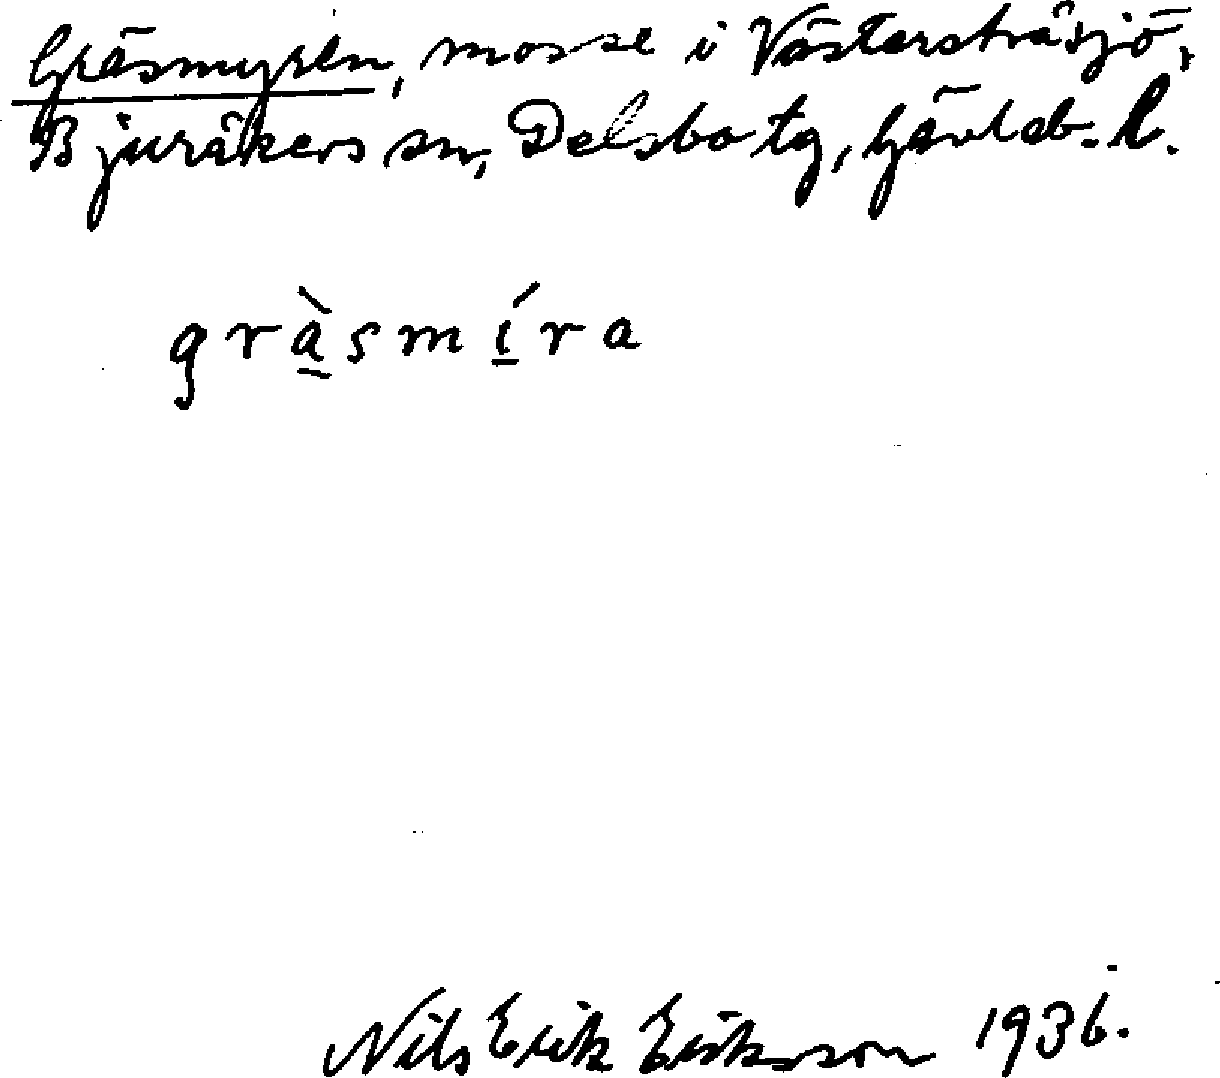 Gräsmyren, mosse i Västerstråsjö,
Bjuråkers sn, Delsbo tg, Gävleb. l.
gràsmíra
Nils Erik Eriksson 1936.